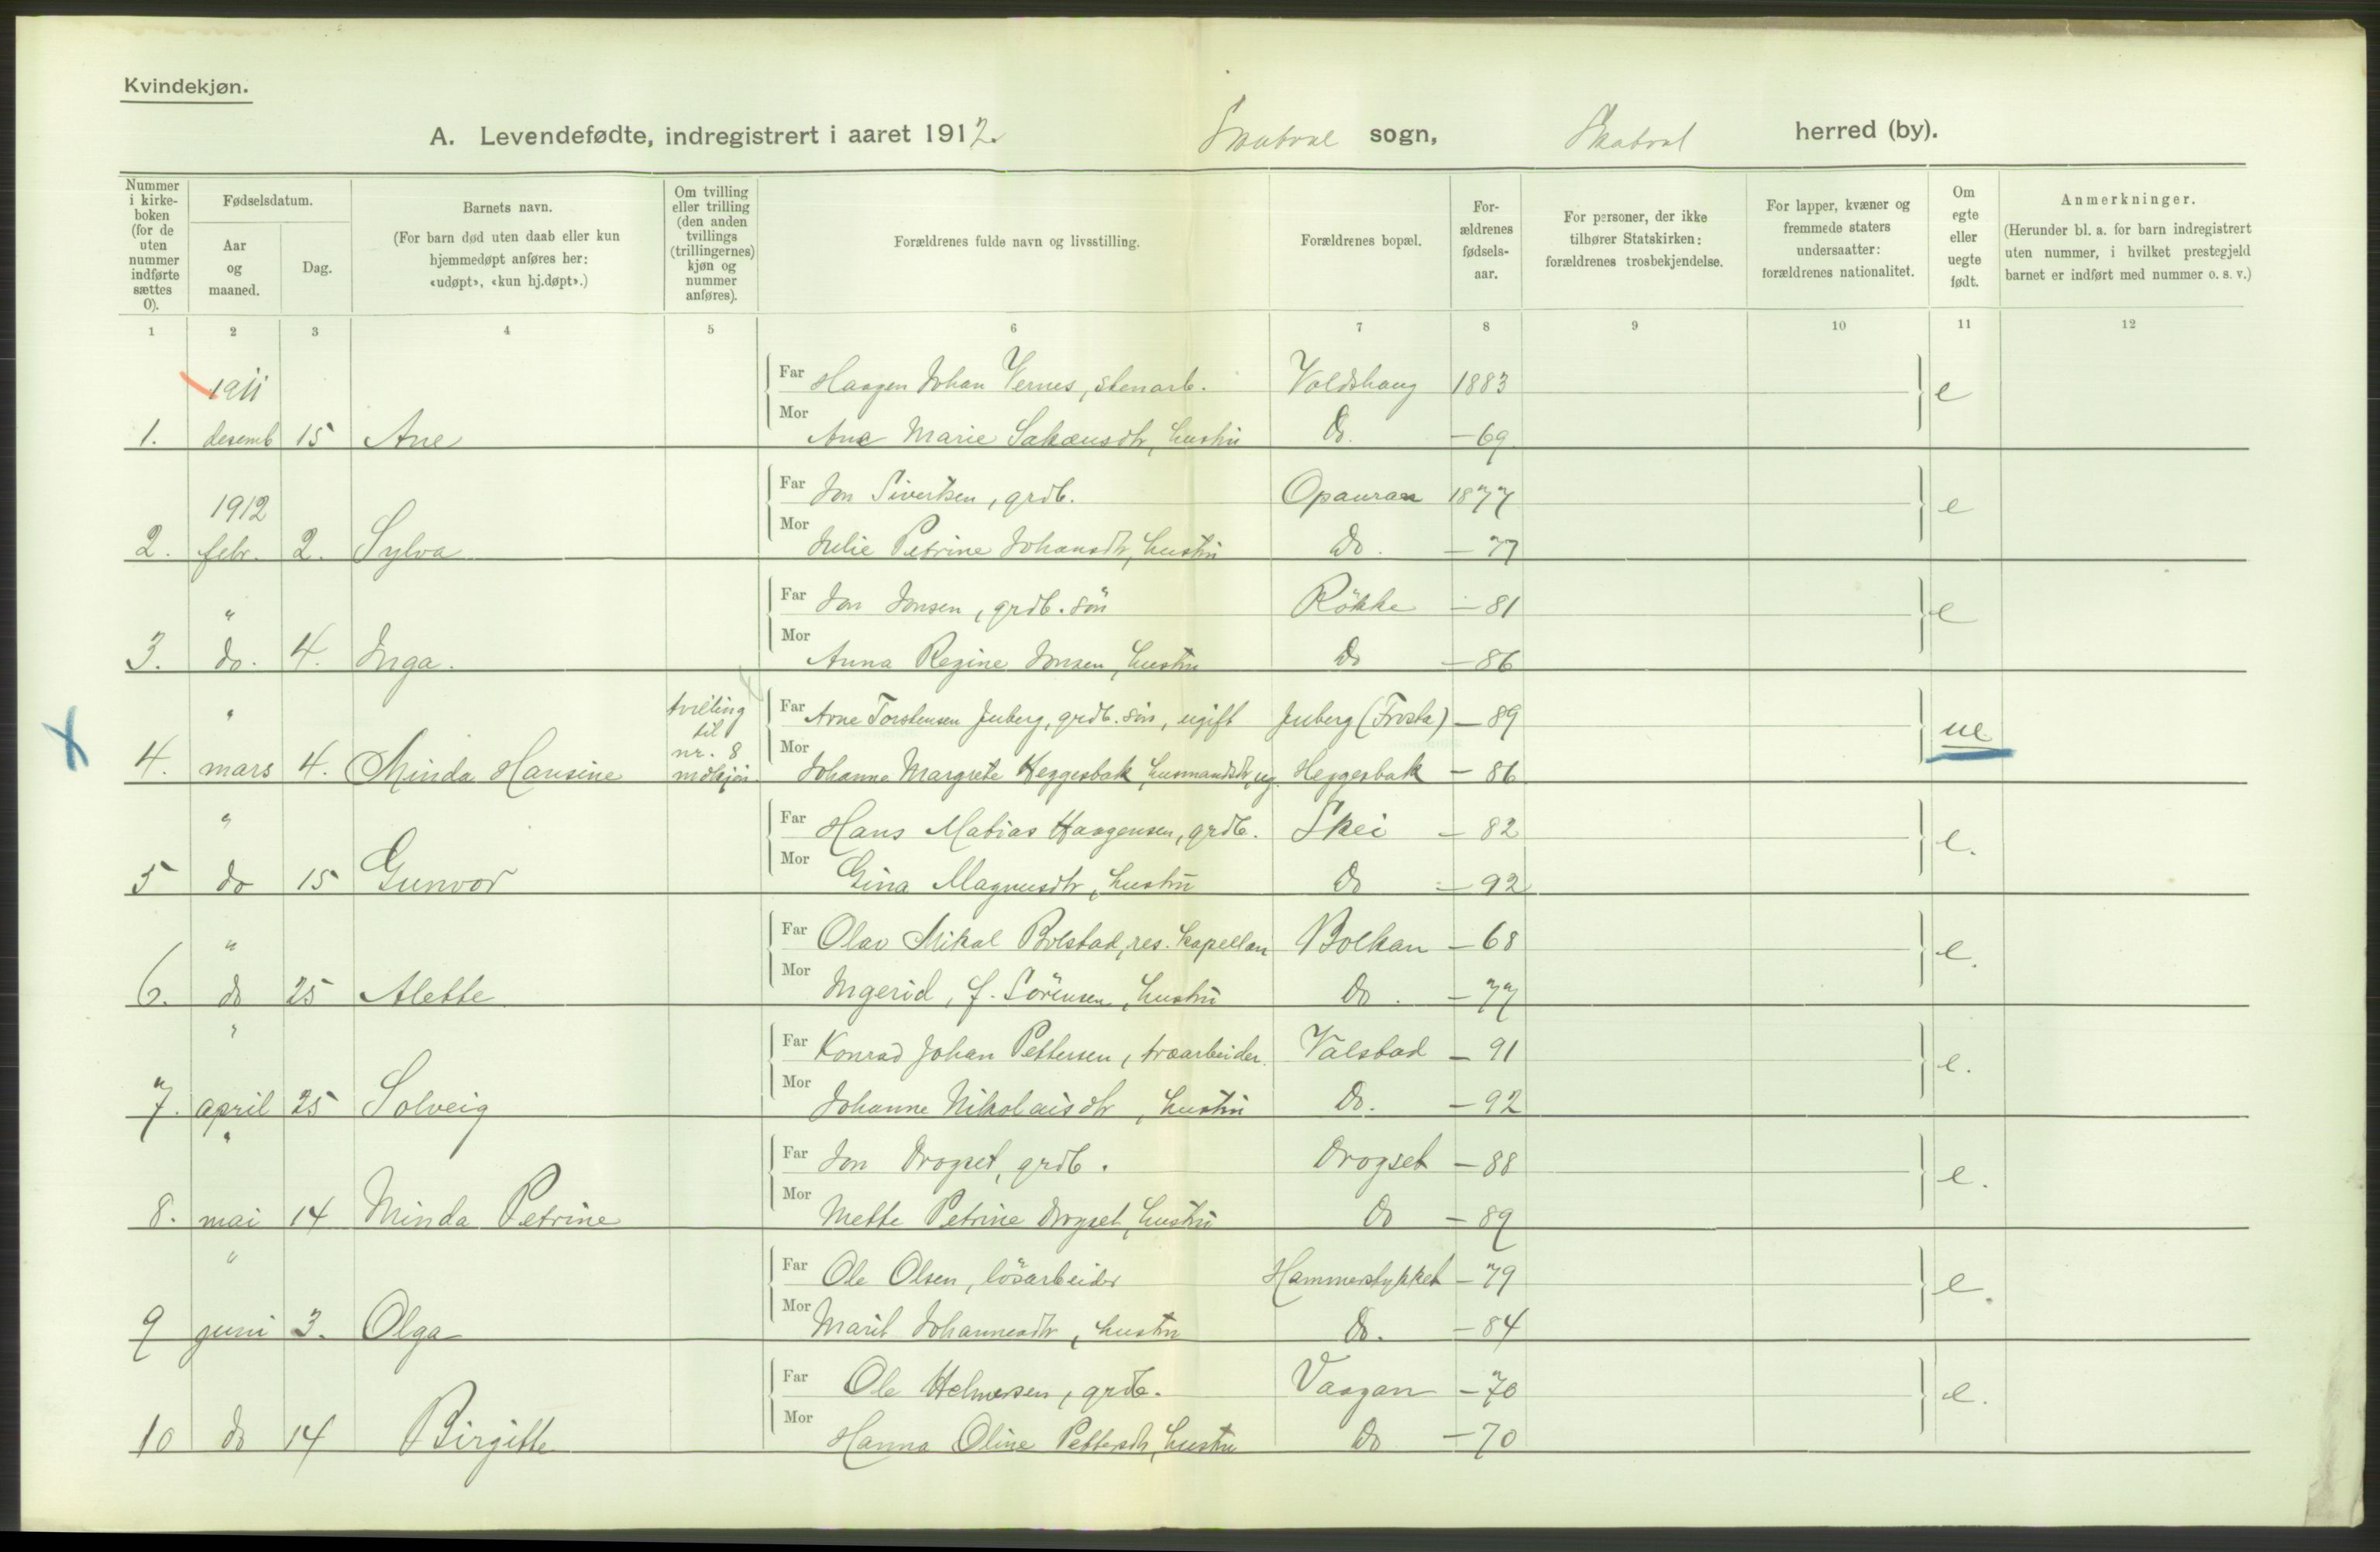 Kvindekjøn.
A. Levendefødte, indregistrert i aaret 1912. Skatval sogn, Skatval herred (by).
Nummer i kirke- boken (for de uten nummer indførte sættes 0).
Fødselsdatum.
Aar og maaned.
Dag.
Barnets navn.
(For barn død uten daab eller kun hjemmedøpt anføres her: «udøpt», «kun hj.døpt».)
Om tvilling eller trilling (den anden tvillings (trillingernes) kjøn og nummer anføres).
Forældrenes fulde navn og livsstilling.
Forældrenes bopæl.
For- ældrenes fødsels- aar.
For personer, der ikke tilhører Statskirken: forældrenes trosbekjendelse.
For lapper, kvæner og fremmede staters undersaatter: forældrenes nationalitet.
Om egte eller uegte født.
Anmerkninger.
(Herunder bl. a. for barn indregistrert uten nummer, i hvilket prestegjeld barnet er indført med nummer o. s. v.)
1 2 3 4 5 6 7 8 9 10 11 12
1911 Far Haagen Johan Vernes, stenarb. Voldshaug 1883 e
1. desemb 15 Ane Mor Ane Marie Sakæusdtr, hustru Do. – 69
1912 Far Jon Sivertsen, grdb. Opauran 1877 e
2. febr. 2. Sylva Mor Julie Petrine Johansdtr, hustru Do. – 77
" Far Jon Jonsen, grdb. sön Rökke – 81 e
3. do. 4. Inga. Mor Anna Regine Jonsen, hustru Do – 86
" tvilling til nr. 8 mdkjön. Far Arne Torstensen Juberg, grdb. sön, ugift Juberg (Frosta) – 89 ue
4. mars 4. Minda Hansine Mor Johanne Margrete Heggesbak, husmandsdtr, ug. Heggesbak – 86
" Far Hans Matias Haagensen, grdb. Skei – 82 e.
5 do 15 Gunvor Mor Gina Magnusdtr, hustru Do – 92
" Far Olav Mikal Bolstad, res. kapellan Bolkan – 68 e.
6. do 25 Alette Mor Ingerid, f. Sörensen, hustru Do. – 77
" Far Konrad Johan Pettersen, træarbeider. Valstad – 91 e.
7. april 25 Solveig Mor Johanne Nikolaisdtr, hustru Do. – 92
" Far Jon Drogset, grdb. Drogset – 88 e.
8. mai 14 Minda Petrine Mor Mette Petrine Drogset, hustru Do – 89
" Far Ole Olsen, lösarbeider Hammerstykket – 79 e.
9 juni 3. Olga Mor Marit Johannesdtr, hustru Do. – 84
Far Ole Helmersen, grdb. Vaagan – 70 e.
10 do 14 Birgitte Mor Hanna Oline Pettersdtr, hustru Do – 70